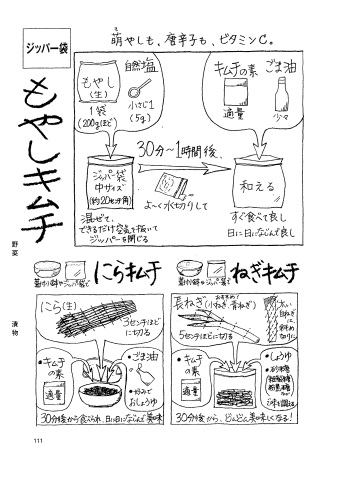 萌やしも、唐辛子も、ビタミンC。
ジッパー袋
もやしキムチ
野菜
漬物
もやし
(生)
1袋
(200gほど)
自然塩
小さじ1
(5g)
キムチの素
適量
ごま油
少々
30分〜1時間後、
ジッパー袋
中サイズ
(約20センチ角)
よ〜く水切りして
和える
混ぜて、
できるだけ空気を抜いて
ジッパーを閉じる
すぐ食べて良し
日に日になじんで良し
蓋付小鉢やジッパー袋で
にらキムチ
にら(生)
3センチほど
に切る
キムチ
の素
適量
ごま油
好みで
おしょうゆ
30分後から食べられ、日に日になじんで美味
蓋付小鉢やジッパー袋で
ねぎキムチ
長ねぎ
おすすめ!
(小ねぎ・青ねぎ)
5センチほどに切る
太い
白ねぎ
は
斜め
切りに
キムチ
の素
適量
しょうゆ
砂糖
30分後から、どんどん美味しくなる!
111